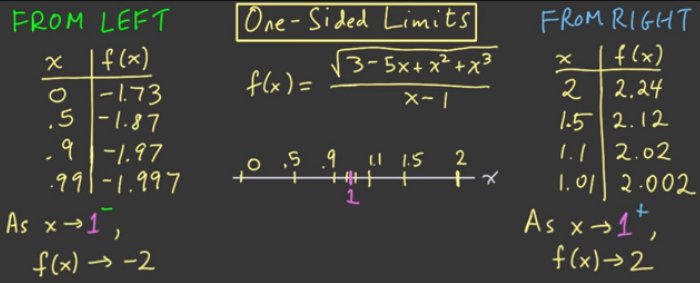 FROM LEFT
x f(x)
0 -1.73
.5 -1.87
.9 -1.97
.99 -1.997
As x→1⁻,
f(x) → -2
One-Sided Limits
f(x) = √(3-5x+x²+x³)
x-1
0 .5 .9 1.1 1.5 2 x
1
FROM RIGHT
x f(x)
2 2.24
1.5 2.12
1.1 2.02
1.01 2.002
As x→1⁺,
f(x)→2